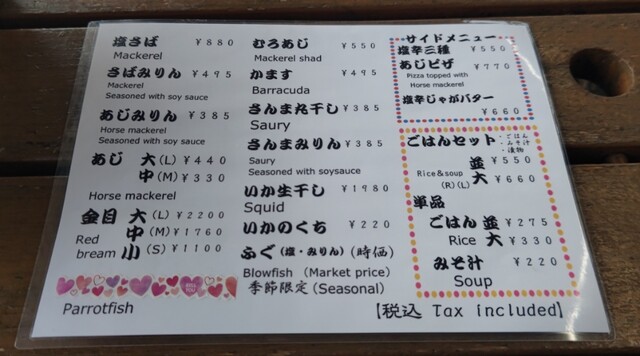 塩さば ¥880
Mackerel
さばみりん ¥495
Mackerel
Seasoned with soy sauce
あじみりん ¥385
Horse mackerel
Seasoned with soy sauce
あじ 大(L) ¥440
中(M) ¥330
Horse mackerel
金目 大(L) ¥2200
Red bream 中(M) ¥1760
小(S) ¥1100
Parrotfish
むろあじ ¥550
Mackerel shad
かます ¥495
Barracuda
さんま丸干し ¥385
Saury
さんまみりん ¥385
Saury
Seasoned with soysauce
いか生干し ¥1980
Squid
いかのくち ¥220
ふぐ(塩・みりん)(時価)
Blowfish (Market price)
季節限定(Seasonal)
サイドメニュー
塩辛三種 ¥550
あじピザ ¥770
Pizza topped with
Horse mackerel
塩辛じゃがバター
¥660
ごはんセット ・ごはん
・みそ汁
・漬物
並 ¥550
Rice&soup
(R)(L) 大 ¥660
単品
ごはん 並 ¥275
Rice 大 ¥330
みそ汁 ¥220
Soup
【税込 Tax included】